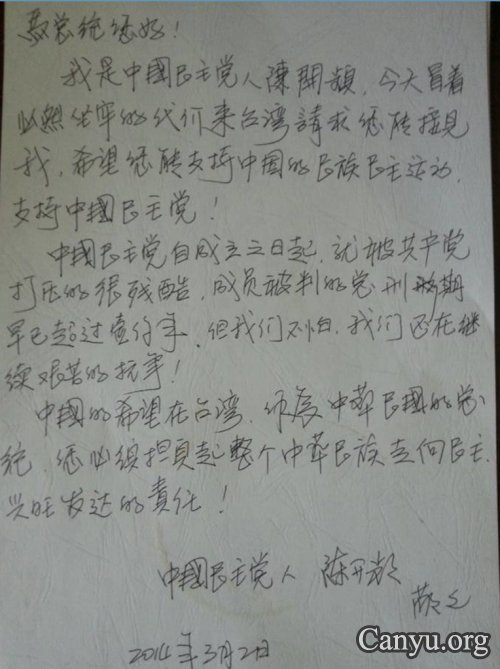 马总统您好!
我是中國民主党人陳開頻,今天冒着
必然坐牢的代价来台湾請求您能接見
我,希望您能支持中国的民族民主运动,
支持中國民主党!
中國民主党自成立之日起,就被共产党
打压的很残酷,成员被判的总刑期
早已超过壹仟年,但我们不怕,我们还在继
续艰苦的抗争!
中國的希望在台湾,你是中華民國的总
统,您必须担負起整个中華民族走向民主,
兴旺发达的責任!
中國民主党人 陈开频
2014年3月2日
Canyu.org